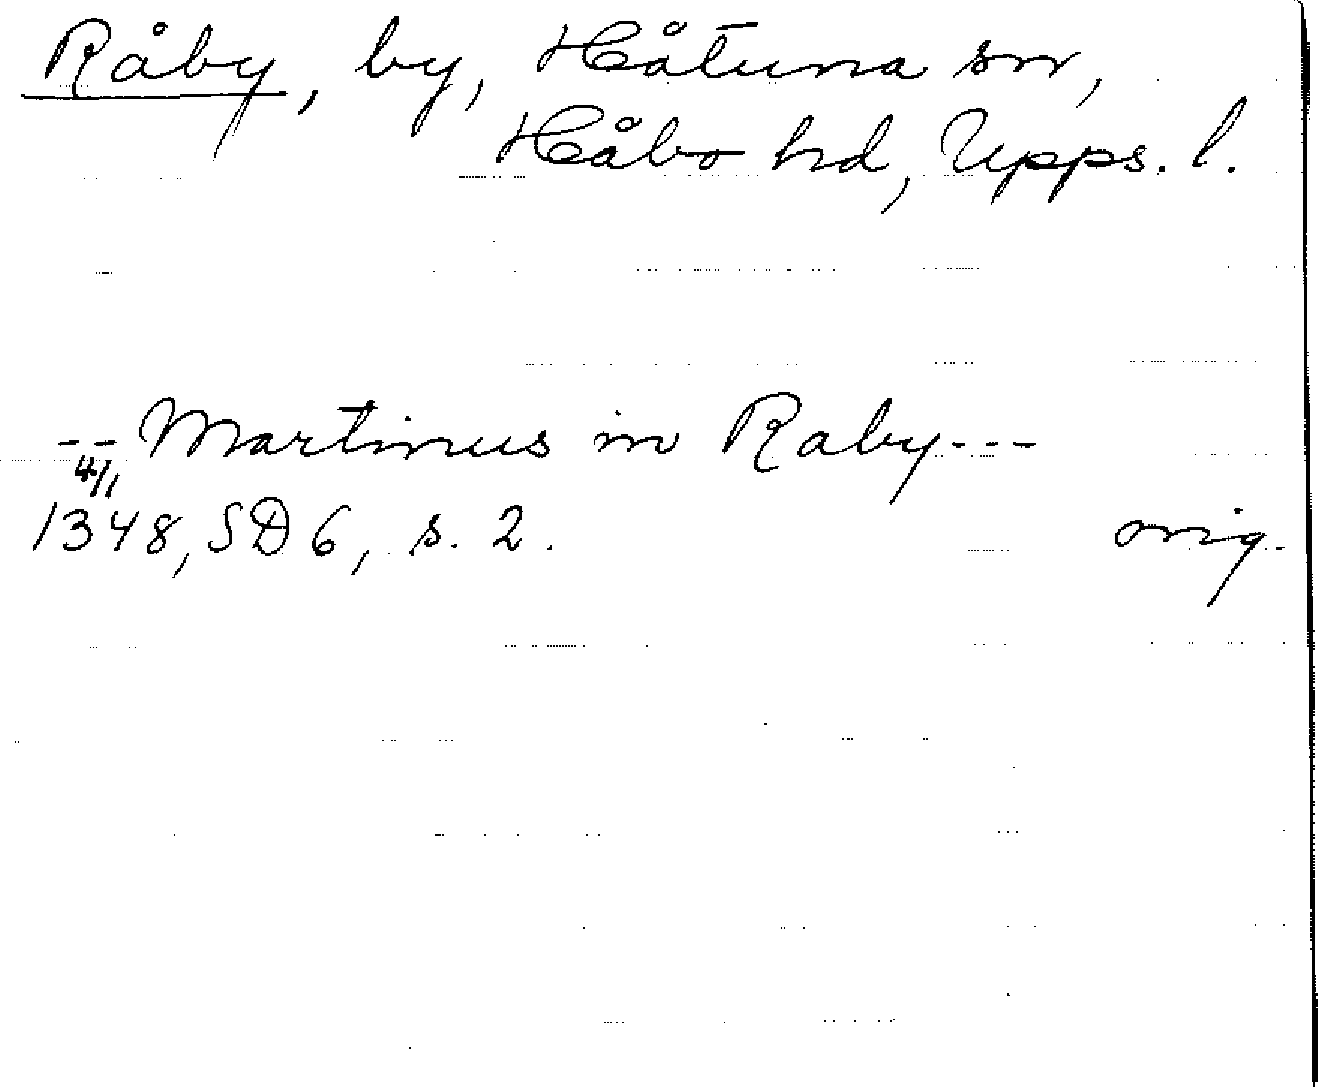 Råby, by, Håtuna sn,
Håbo hd, Upps. l.
-- Martinus in Raby ---
4/1
1348, SD 6, s. 2. orig.